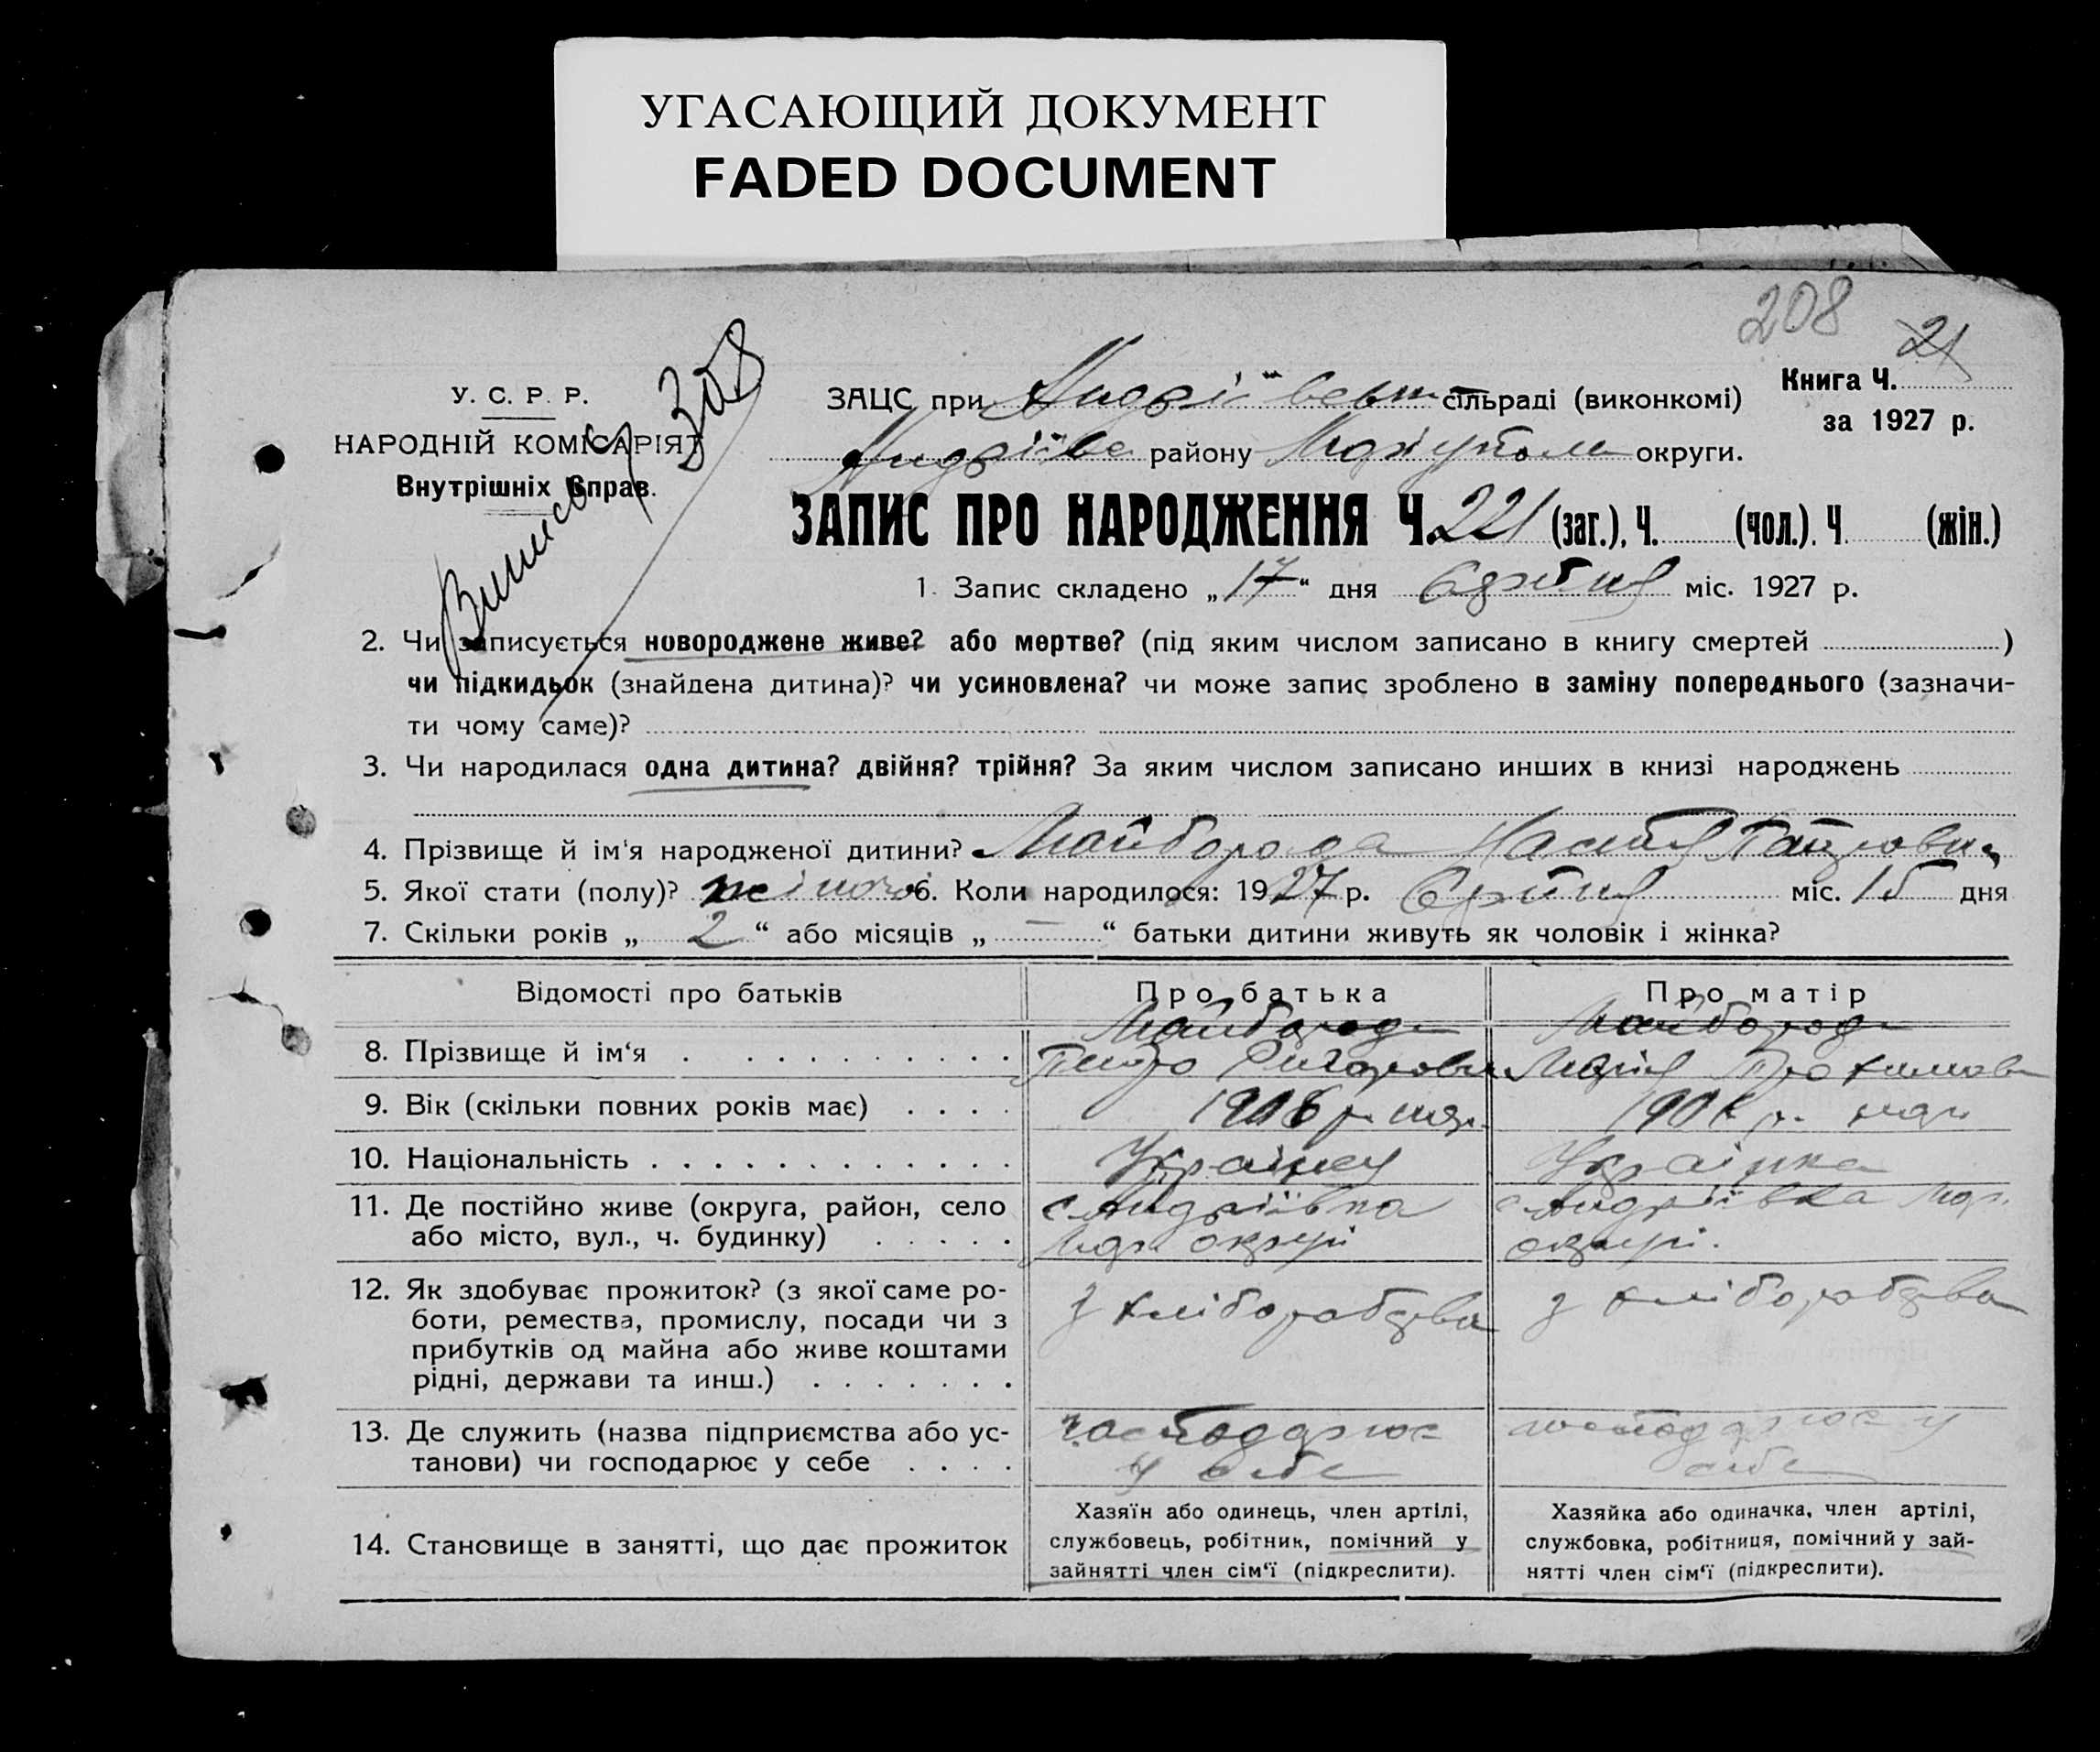 УГАСАЮЩИЙ ДОКУМЕНТ
FADED DOCUMENT
208
21
У. С. Р. Р.
НАРОДНІЙ КОМІСАРІЯТ
Внутрішніх Справ.
308
ЗАЦС при Андріївськ сільраді (виконкомі)
Книга Ч.
за 1927 р.
Андріївс району Маріупольс округи.
ЗАПИС ПРО НАРОДЖЕННЯ Ч. 221 (заг.), Ч. (чол.). Ч (жін.)
1. Запис складено „17“ дня серпня міс. 1927 р.
2. Чи записується новороджене живе? або мертве? (під яким числом записано в книгу смертей )
чи підкидьок (знайдена дитина)? чи усиновлена? чи може запис зроблено в заміну попереднього (зазначи-
ти чому саме)?
3. Чи народилася одна дитина? двійня? трійня? За яким числом записано инших в книзі народжень
4. Прізвище й ім'я народженої дитини? Майборода Настя Петровна
5. Якої стати (полу)? жіночої 6. Коли народилося: 1927 р. серпня міс. 15 дня
7. Скільки років „ 2 “ або місяців „ — “ батьки дитини живуть як чоловік і жінка?
Відомості про батьків Про батька Про матір
Майборода Майборода
8. Прізвище й ім‘я Петро Григорови Марія Трохимовн
9. Вік (скільки повних років має) 1906 р. нар. р. нар
10. Національність Українец Українка
11. Де постійно живе (округа, район, село с Андріївка с Андріївка Мар.
або місто, вул., ч. будинку) Мар. округи округи.
12. Як здобуває прожиток? (з якої саме ро- з хліборобства з хліборобства
боти, ремества, промислу, посади чи з
прибутків од майна або живе коштами
рідні, держави та инш.)
13. Де служить (назва підприємства або ус- господарює господарює у
танови) чи господарює у себе у себе себе
Хазяїн або одинець, член артілі, Хазяйка або одиначка, член артілі,
14. Становище в занятті, що дає прожиток службовець, робітник, помічний у службовка, робітниця, помічний у зай-
зайнятті член сім‘ї (підкреслити). нятті член сім‘ї (підкреслити).